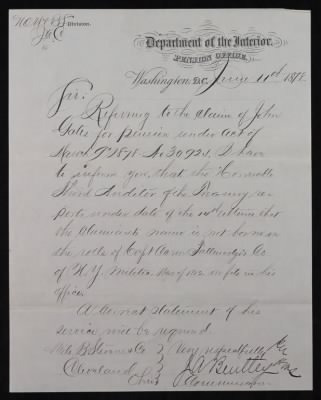 Division.
Department of the Interior,
PENSION OFFICE,
Washington, D.C. June 11th 1878
Sir:
Referring to the claim of John
Gates for pension under act of
March 9" 1878 No 30,921, I have
to inform you, that the Hon
Third Auditor of the Treasury re-
ports under date of the 14th ultimo that
the claimants name is not borne on
the rolls of Capt Aaron Co
of N.Y. Militia War of 1812 on file in his
office.
A correct statement of his
service will be required.
Very respectfully
Cleveland J A Bentley
Ohio Commissioner